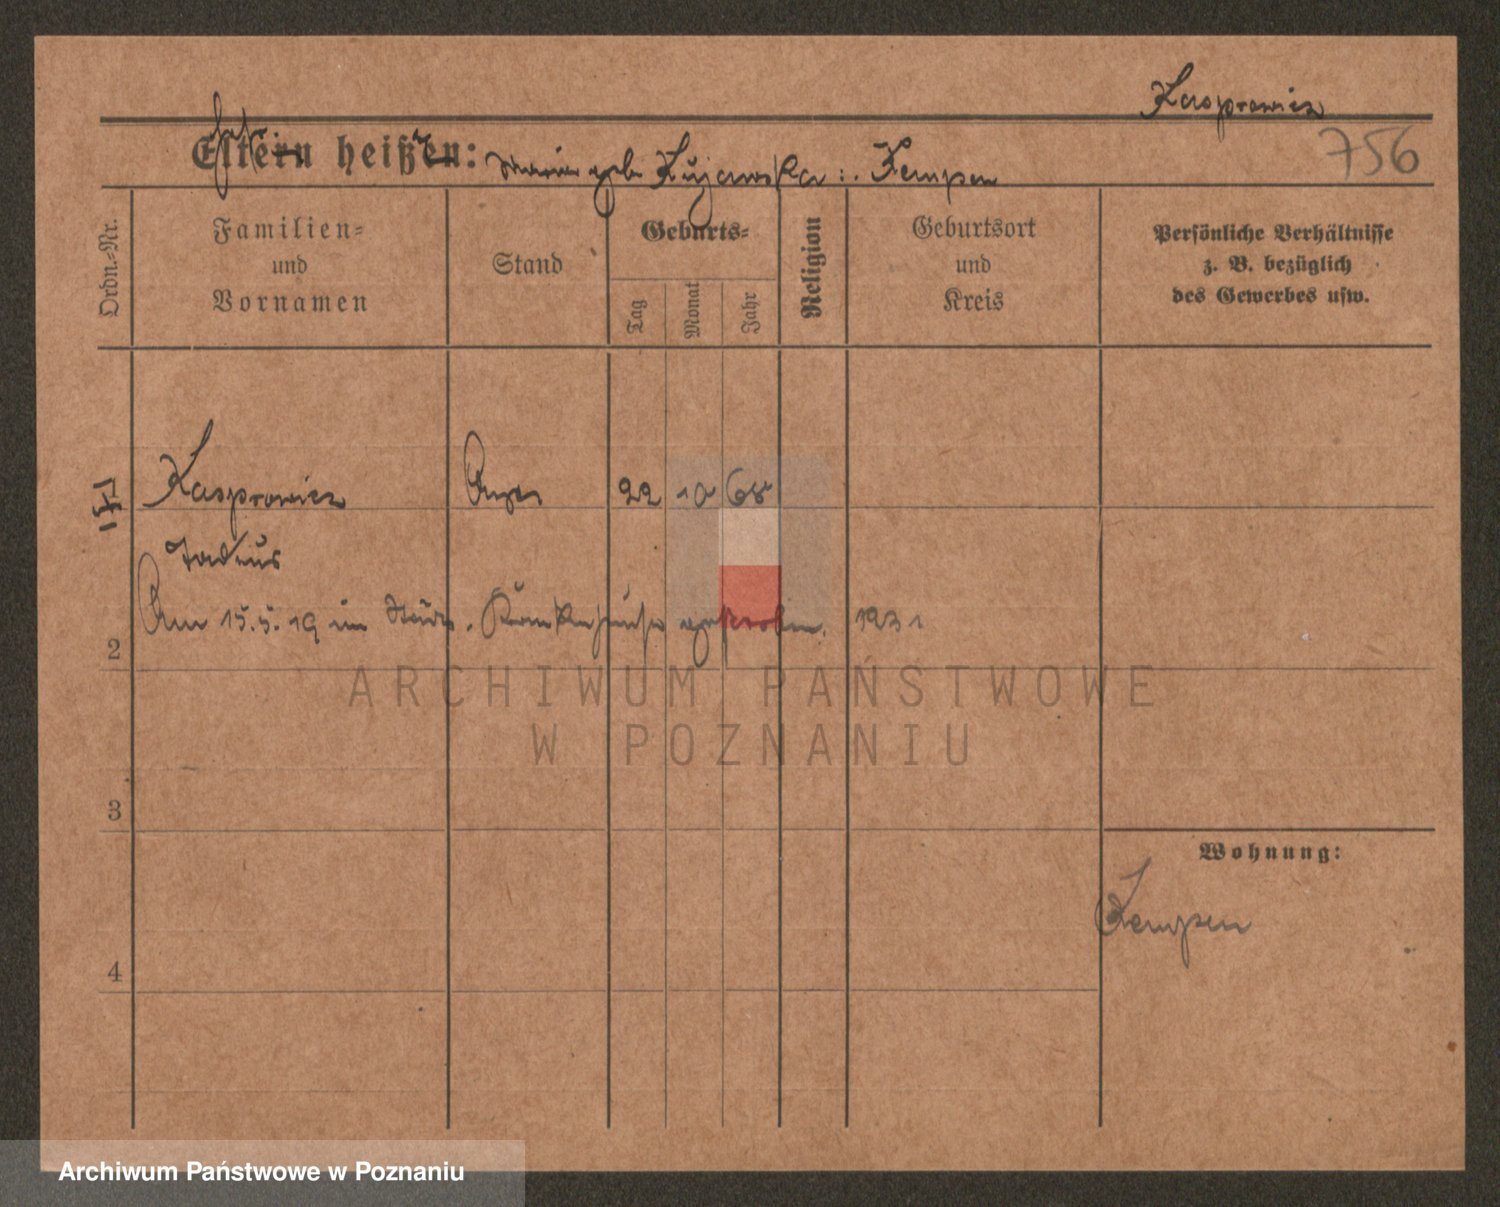 Kasprowicz
Eltern heißen: geb. Kujawska :. Kempen
756
Ordn.-Nr.
Familien-
und
Vornamen
Stand
Geburts-
Tag
Monat
Jahr
Religion
Geburtsort
und
Kreis
Persönliche Verhältnisse
z. B. bezüglich
des Gewerbes usw.
Kasprowicz 22 10 68
Tadeus
Am 15.5.19 im Städt. Krankenhause gestorben. 1931
2
ARCHIWUM PAŃSTWOWE
W POZNANIU
3
Wohnung:
Kempen
4
Archiwum Państwowe w Poznaniu